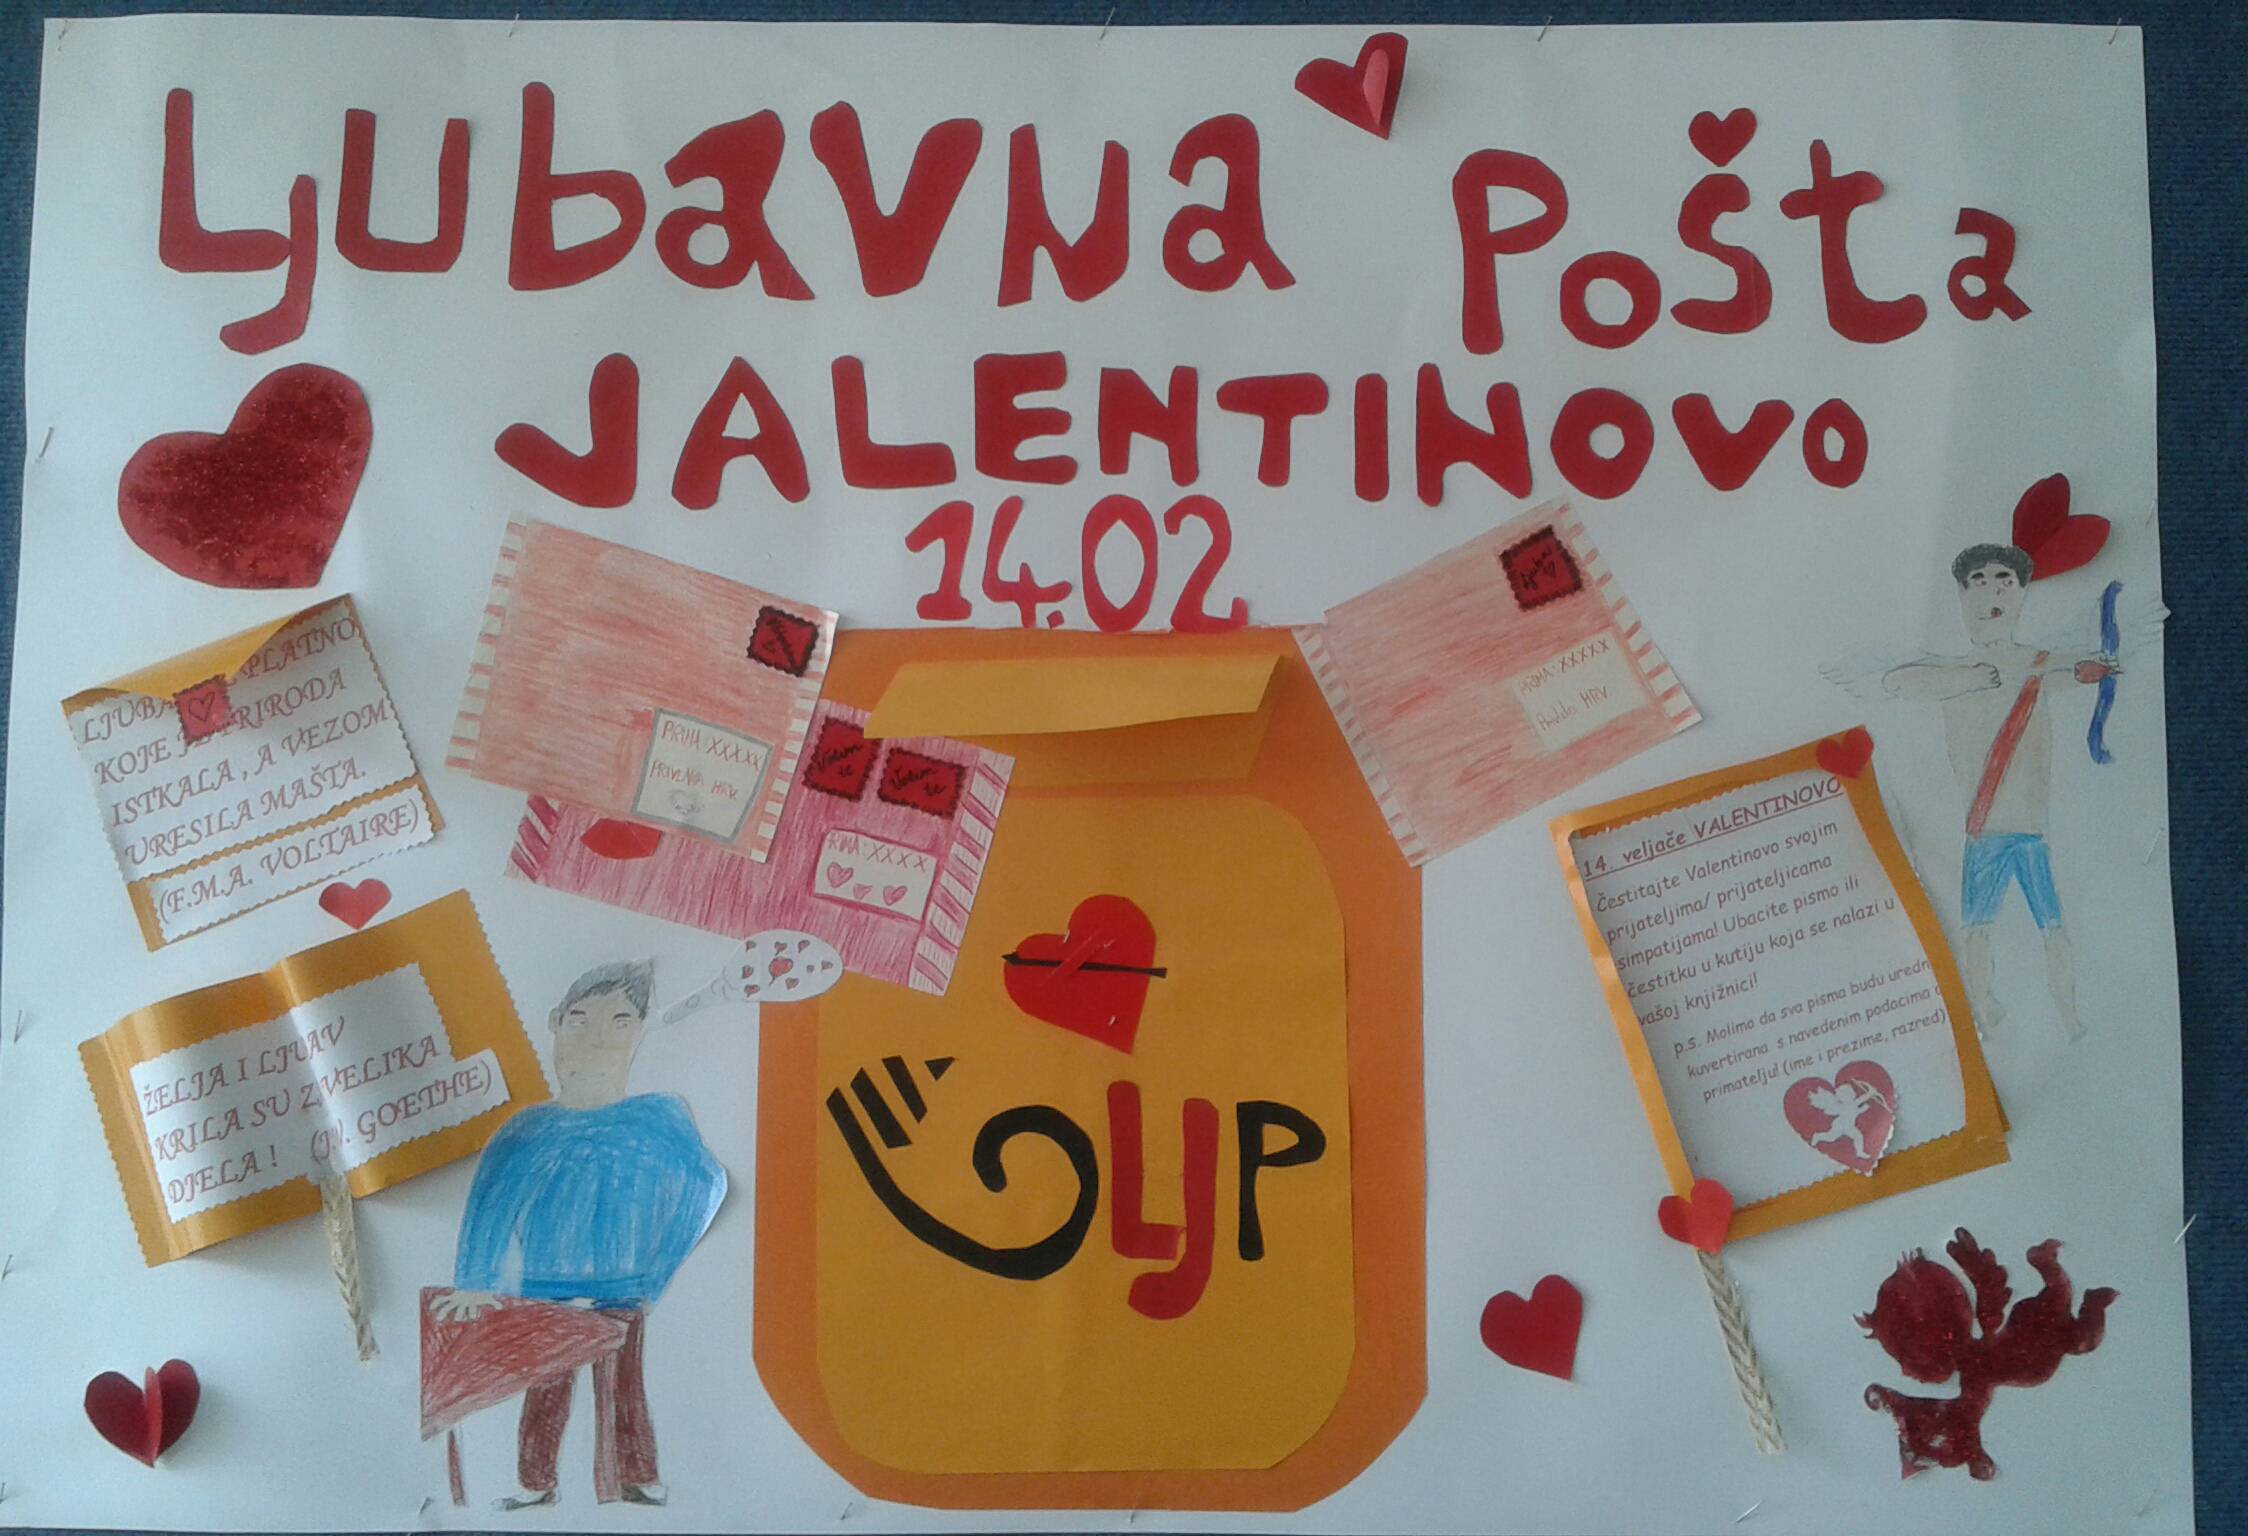 Ljubavna Pošta
VALENTINOVO
14.02
LJUBAV PLATNO
KOJE JE PRIRODA
ISTKALA , A VEZOM
URESILA MAŠTA.
(F.M.A. VOLTAIRE)
PRIMA:XXXXX
HRV.
Volim
te
Volim
te
PRIMA:XXXX
Ljubav
PRIMA:XXXXX
HRV.
ŽELJA I LJUBAV
KRILA SU ZA VELIKA
DJELA ! (J.W. GOETHE)
LJP
14. veljače VALENTINOVO
Čestitajte Valentinovo svojim
prijateljima/ prijateljicama
simpatijama! Ubacite pismo ili
čestitku u kutiju koja se nalazi u
vašoj knjižnici!
p.s. Molimo da sva pisma budu uredn
kuvertirana s navedenim podacima o
primatelju! (ime i prezime, razred)